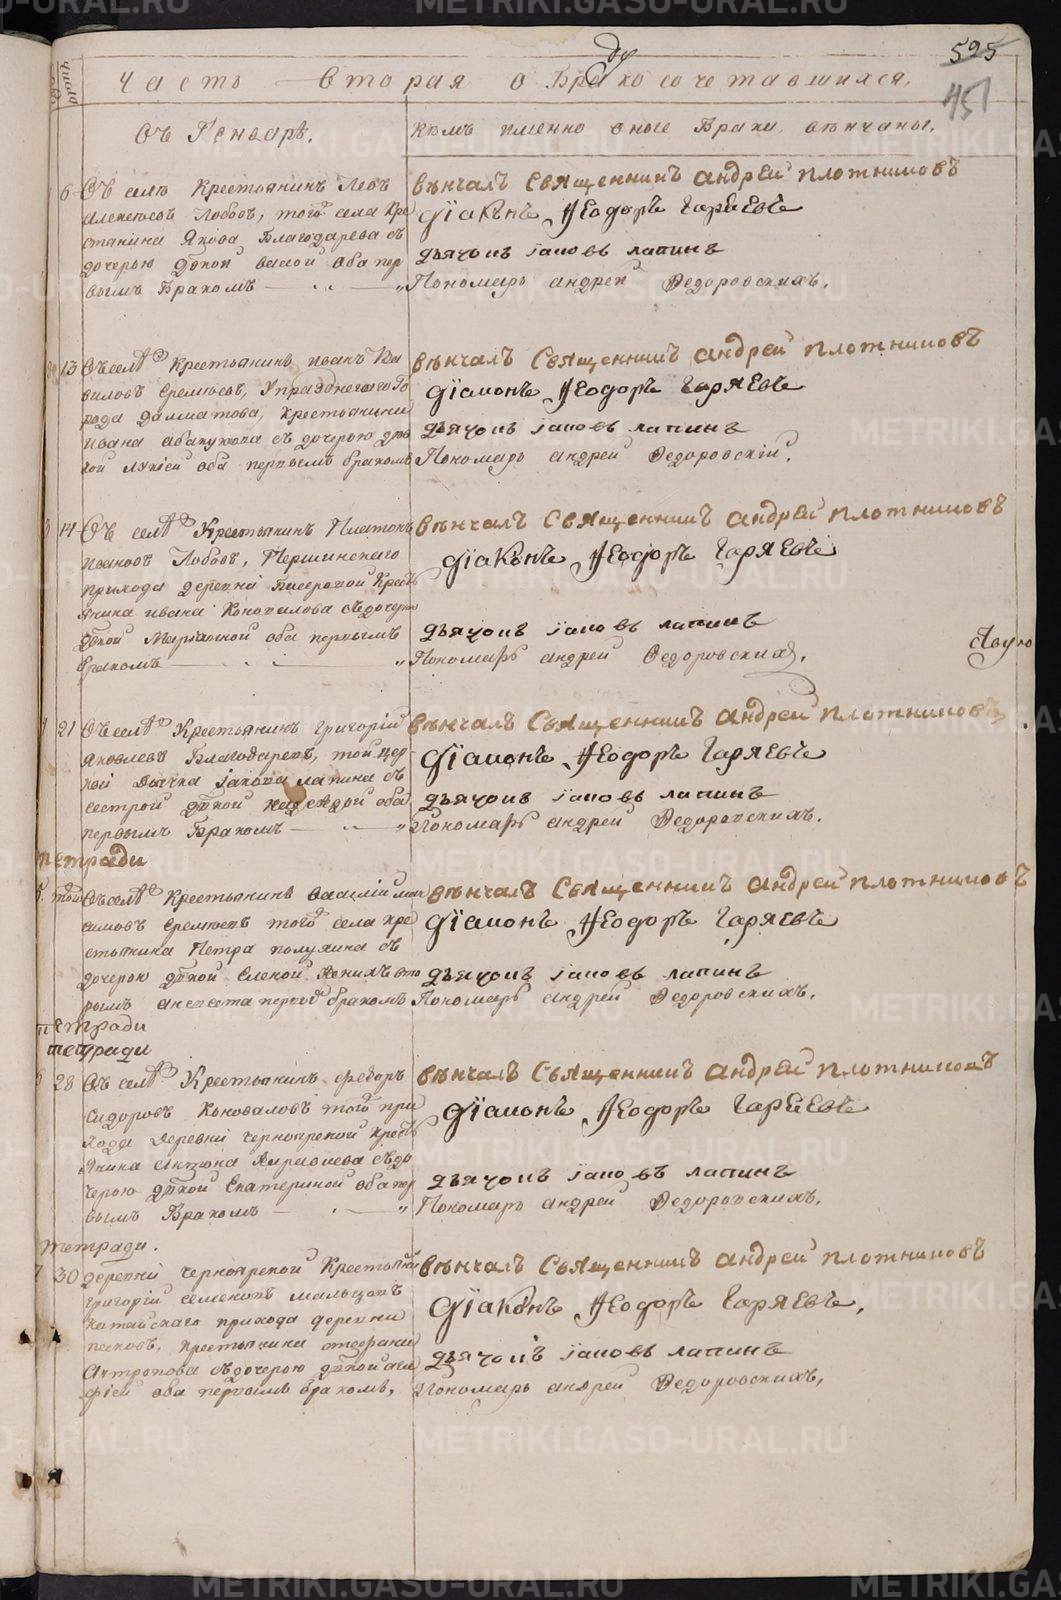 525
451
Часть вторая о Бракосочетавшихся.
Въ Генварѣ.
Кѣмъ именно оные Браки вѣнчаны.
6 Въ селѣ Крестьянинъ Левъ
Алексѣевъ Лобовъ, того села Кре
стьянина Якова Благодарева съ
дочерью дѣвкой оба пер
вымъ Бракомъ
вѣнчалъ Священникъ Андрей Плотниковъ
Дïаконъ Ѳеодоръ Гаряевъ
дьячокъ Iаковъ Лапинъ
Пономарь Андрей Ѳедоровскихъ.
13 Въ селѣ Крестьянинъ Иванъ
виловъ Еремѣевъ, Упразднеаго Го
рода Далматова, Крестьянина
Ивана съ дочерью дѣв
кой Лукïей оба первымъ бракомъ
вѣнчалъ Священникъ Андрей Плотниковъ
Дïаконъ Ѳеодоръ Гаряевъ
дьячокъ Iаковъ Лапинъ
Пономарь Андрей Ѳедоровскiй.
3 14 Въ селѣ Крестьянинъ Платонъ
Ивановъ Лобовъ, Першинскаго
прихода деревни Бисеровой Крест
янина Ивана Коновалова съ дочерью
дѣвкой оба первымъ
бракомъ
вѣнчалъ Священникъ Андрей Плотниковъ
Дïаконъ Ѳеодоръ Гаряевъ
дьячокъ Iаковъ Лапинъ
Пономарь Андрей Ѳедоровскихъ.
4 21 Въ селѣ Крестьянинъ Григорïй
Яковлевъ Благодаревъ, той цер
кви Дьячка Iакова Лапина съ
сестрой дѣвкой Надеждой оба
первымъ Бракомъ
вѣнчалъ Священникъ Андрей Плотниковъ
Дïаконъ Ѳеодоръ Гаряевъ
дьячокъ Iаковъ Лапинъ
Пономарь Андрей Ѳедоровскихъ.
тетради
5 того Въ селѣ Крестьянинъ Василïй
симовъ Еремѣевъ того села Кре
стьянина Петра Полуянна съ
дочерью дѣвкой Еленой Женихъ вто
рымъ а невѣста первымъ бракомъ
вѣнчалъ Священникъ Андрей Плотниковъ
Дïаконъ Ѳеодоръ Гаряевъ
дьячокъ Iаковъ Лапинъ
Пономарь Андрей Ѳедоровскихъ.
тетради
тетради
6 28 Въ селѣ Крестьянинъ Федоръ
Сидоровъ Коноваловъ того при
хода Деревни Черноярской Крестъ
янина Антона съ до
черью дѣвкой Екатериной оба пер
вымъ Бракомъ
вѣнчалъ Священникъ Андрей Плотниковъ
Дïаконъ Ѳеодоръ Гаряевъ
дьячокъ Iаковъ Лапинъ
Пономарь Андрей Ѳедоровскихъ.
тетради.
7 30 Деревни Черноярской Крестьянинъ
Григорïй Семеновъ Мальцовъ
Катайскаго прихода деревни
Крестьянина Стефана
Антропова съ дочерью дѣвкой Ага
фïей оба первымъ бракомъ,
вѣнчалъ Священникъ Андрей Плотниковъ
Дïаконъ Ѳеодоръ Гаряевъ,
дьячокъ Iаковъ Лапинъ
Пономарь Андрей Ѳедоровскихъ,
METRIKI.GASO-URAL.RU